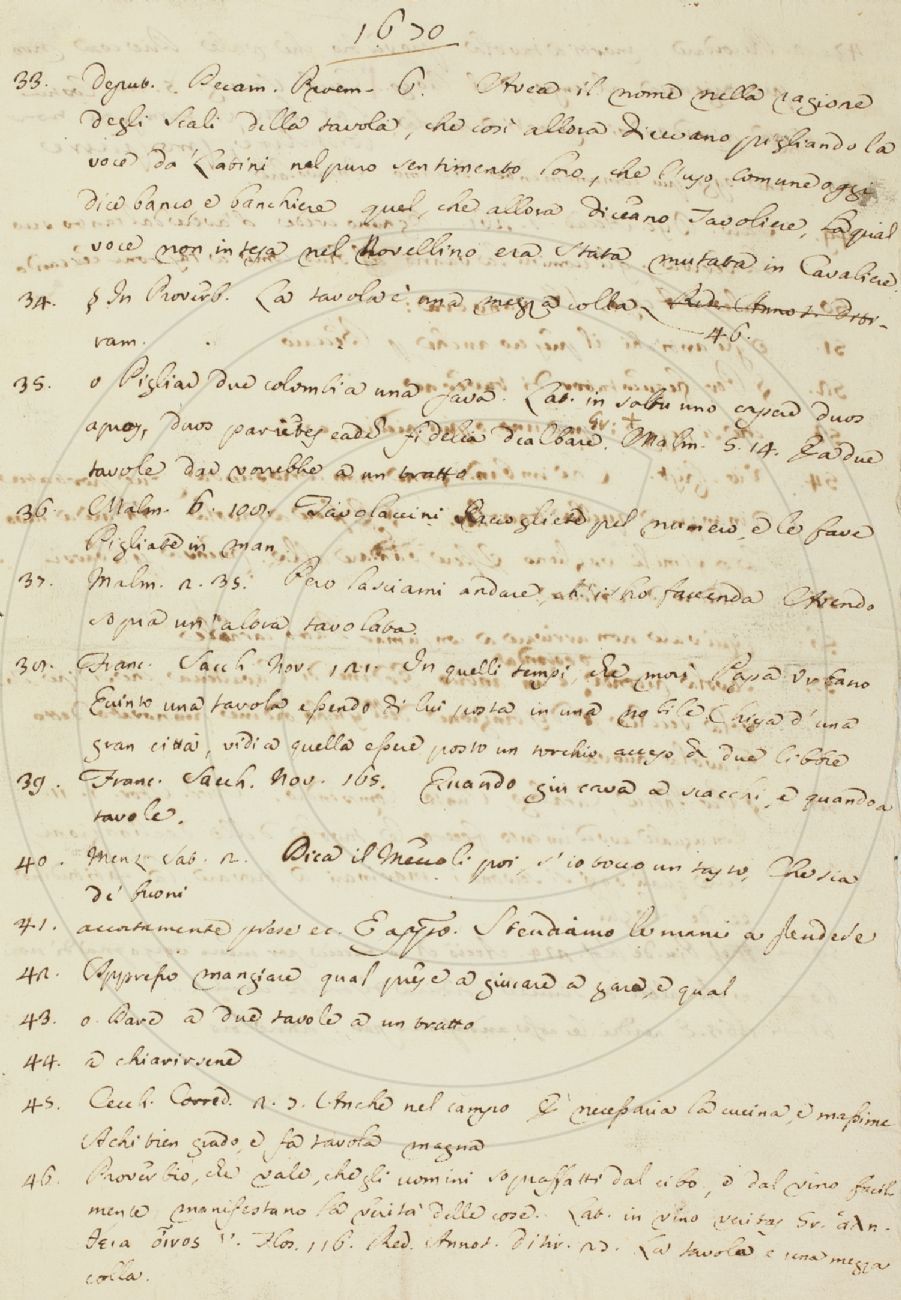 1670
33. Deput. Decam. Proem. 6. Avea il nome nella ragione
degli Scali della tavola, che così allora dicevano pigliando la
voce da Latini nel puro sentimento loro, che l'uso comune oggi
dice banco e banchiere quel, che allora diceano Tavoliere, La qual
voce non intesa nel Novellino era stata mutata in Cavaliere.
34. § In Proverb. La tavola è una mezza colla. Red. Annot. Ditir-
46.
ram.
35. o Pigliar due colombi a una fava. Lat. in saltu uno capere duos
apros, duos parietes eadē fidelia dealbare. Gr. + Malm. 5. 14. Fa due
tavole dar vorrebbe a un tratto
36 Malm. 6. 108. Tavolaccini Raccogliete pel numero, e le fave
Pigliate in man
37. Malm. 2. 35. Però lasciami andare, ho faccenda Avendo
sopra un'altra tavolata.
38. Franc. Sacch. Nov. 121. In quelli tempi, che morì Papa Urbano
Quinto una tavola essendo di lui posta in una nobile Chiesa d'una
gran città, vidi a quella essere posto un torchio acceso di due libbre
39. Franc. Sacch. Nov. 165. Quando giucava a scacchi, e quando a
tavole.
40. Menz. Sat. 2. Dica il Meccoli poi, s'io tocco un tasto, Che sia
de' buoni
41. accortamente prese ec. E appō. Stendiamo le mani a prendere
42. Appresso mangiare qual prese a giucare a zara, e qual
43. o Dare a due tavole a un tratto
44. a chiarirsene
45. Cecch. Corred. 2. 7. Anche nel campo È necessaria la cucina, e massime
A chi tien grado, e fa tavola magna
46. Proverbio, che vale, che gli uomini sopraffatti dal cibo, e dal vino facil-
mente manifestano la verità delle cose. Lat. in vino veritas Gr. ἀλη-
θεια οἶνος V. Flos. 116. Red. Annot. Ditir. 27. La tavola è una mezza
colla.